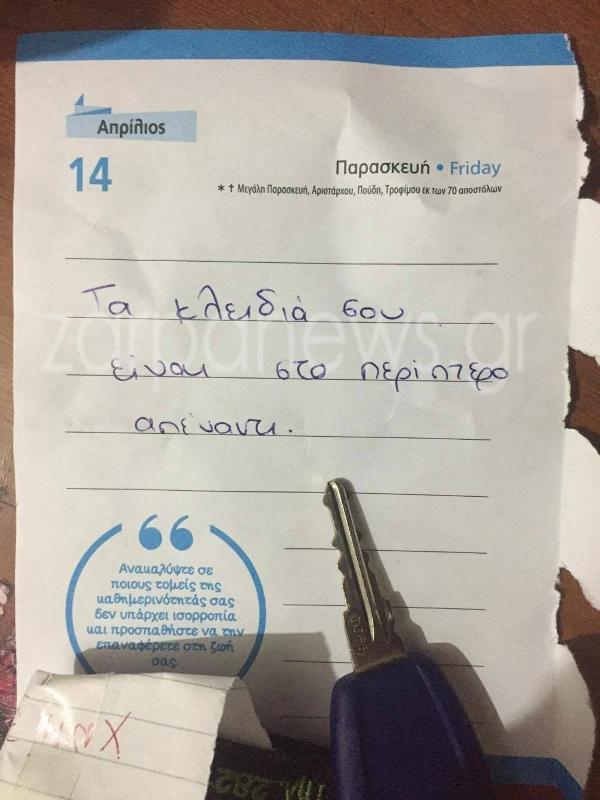 Απρίλιος
14
Παρασκευή • Friday
* † Μεγάλη Παρασκευή, Αριστάρχου, Πούδη, Τροφίμου εκ των 70 αποστόλων
Τα κλειδιά σου
είναι στο περίπτερο
απέναντι.
zarpanews.gr
Ανακαλύψτε σε
ποιους τομείς της
καθημερινότητάς σας
δεν υπάρχει ισορροπία
και προσπαθήστε να την
επαναφέρετε στη ζωή
σας.
282